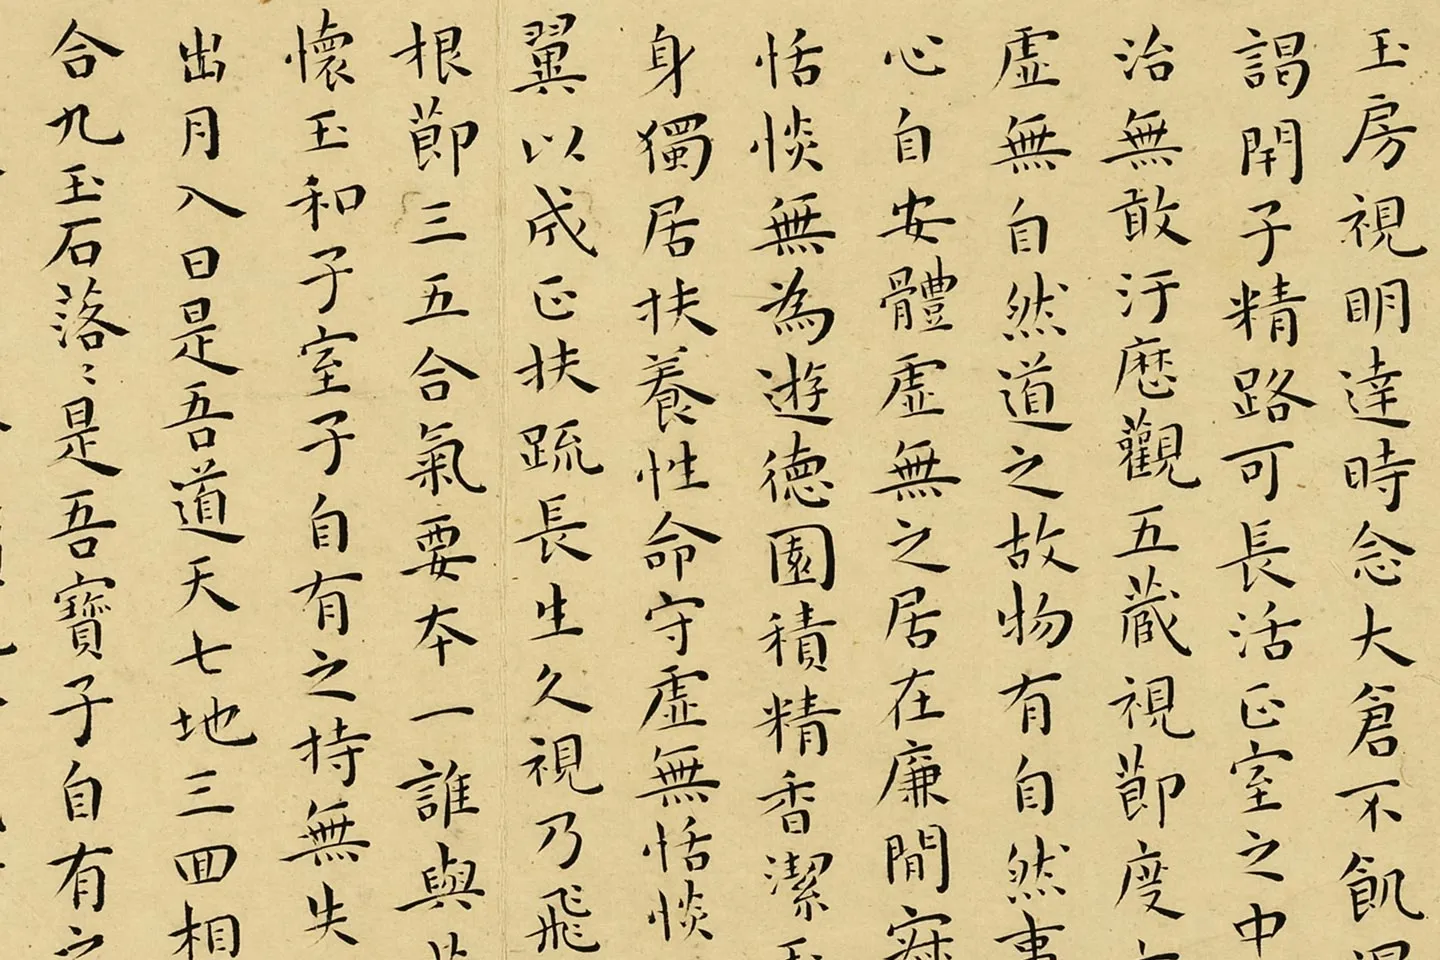 玉房視明達時念大倉不飢渴
謁閇子精路可長活正室之中
治無敢汙歷觀五藏視節度六
虛無自然道之故物有自然事
心自安體虛無之居在廉間寂
恬惔無為遊德園積精香潔玉
身獨居扶養性命守虛無恬惔
翼以成正扶疏長生久視乃飛
根節三五合氣要本一誰與共
懷玉和子室子自有之持無失
出月入日是吾道天七地三回相
合九玉石落〻是吾寶子自有之